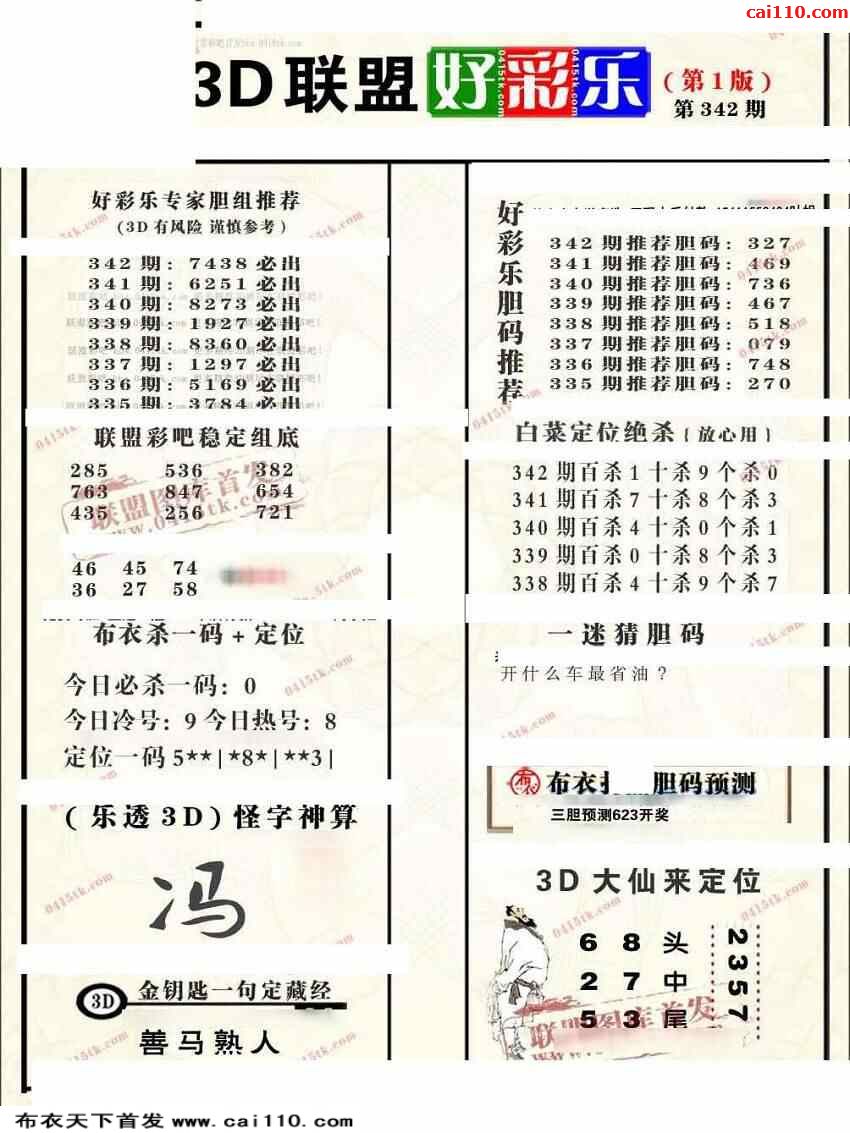 cai110.com
3D联盟好彩乐
(第1版)
第342期
好彩乐专家胆组推荐
(3D有风险 谨慎参考)
342期: 7438必出
341期: 6251必出
340期: 8273必出
339期: 1927必出
338期: 8360必出
337期: 1297必出
336期: 5169必出
335期: 3784必出
联盟彩吧稳定组底
285 536 382
763 847 654
435 256 721
46 45 74
36 27 58
布衣杀一码+定位
今日必杀一码: 0
今日冷号: 9 今日热号: 8
定位一码 5**|*8*|**3|
(乐透3D)怪字神算
冯
3D 金钥匙一句定藏经
善马熟人
好彩乐胆码推荐
342期推荐胆码: 327
341期推荐胆码: 469
340期推荐胆码: 736
339期推荐胆码: 467
338期推荐胆码: 518
337期推荐胆码: 079
336期推荐胆码: 748
335期推荐胆码: 270
白菜定位绝杀{放心用}
342期百杀1十杀9个杀0
341期百杀7十杀8个杀3
340期百杀4十杀0个杀1
339期百杀0十杀8个杀3
338期百杀4十杀9个杀7
一迷猜胆码
开什么车最省油?
布衣 胆码预测
三胆预测623开奖
3D大仙来定位
6 8 头
2 7 中
5 3 尾
2357
联盟图库首发
www.0415tk.com
布衣天下首发 www.cai110.com